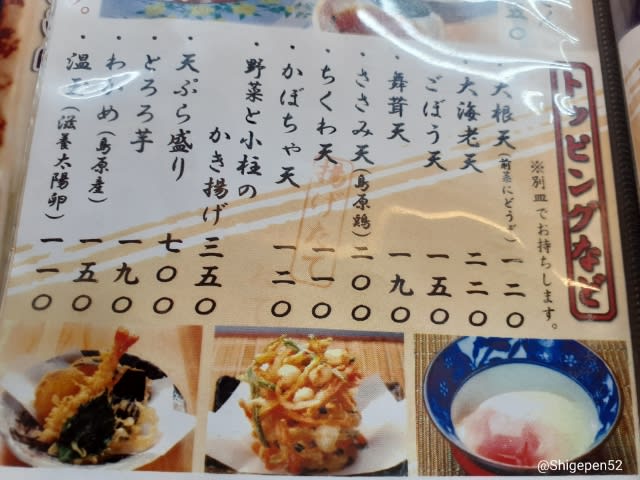 トッピングなど
※別皿でお持ちします。
・大根天(前菜にどうぞ)一二〇
・大海老天 二二〇
・ごぼう天 一五〇
・舞茸天 一九〇
・ささみ天(島原鶏)二〇〇
・ちくわ天 一一〇
・かぼちゃ天 一二〇
・野菜と小柱の
かき揚げ 三五〇
・天ぷら盛り 七〇〇
・とろろ芋 一九〇
・わかめ(島原産)一五〇
・温玉(滋養太陽卵)一一〇
揚げたて
@Shigepen52